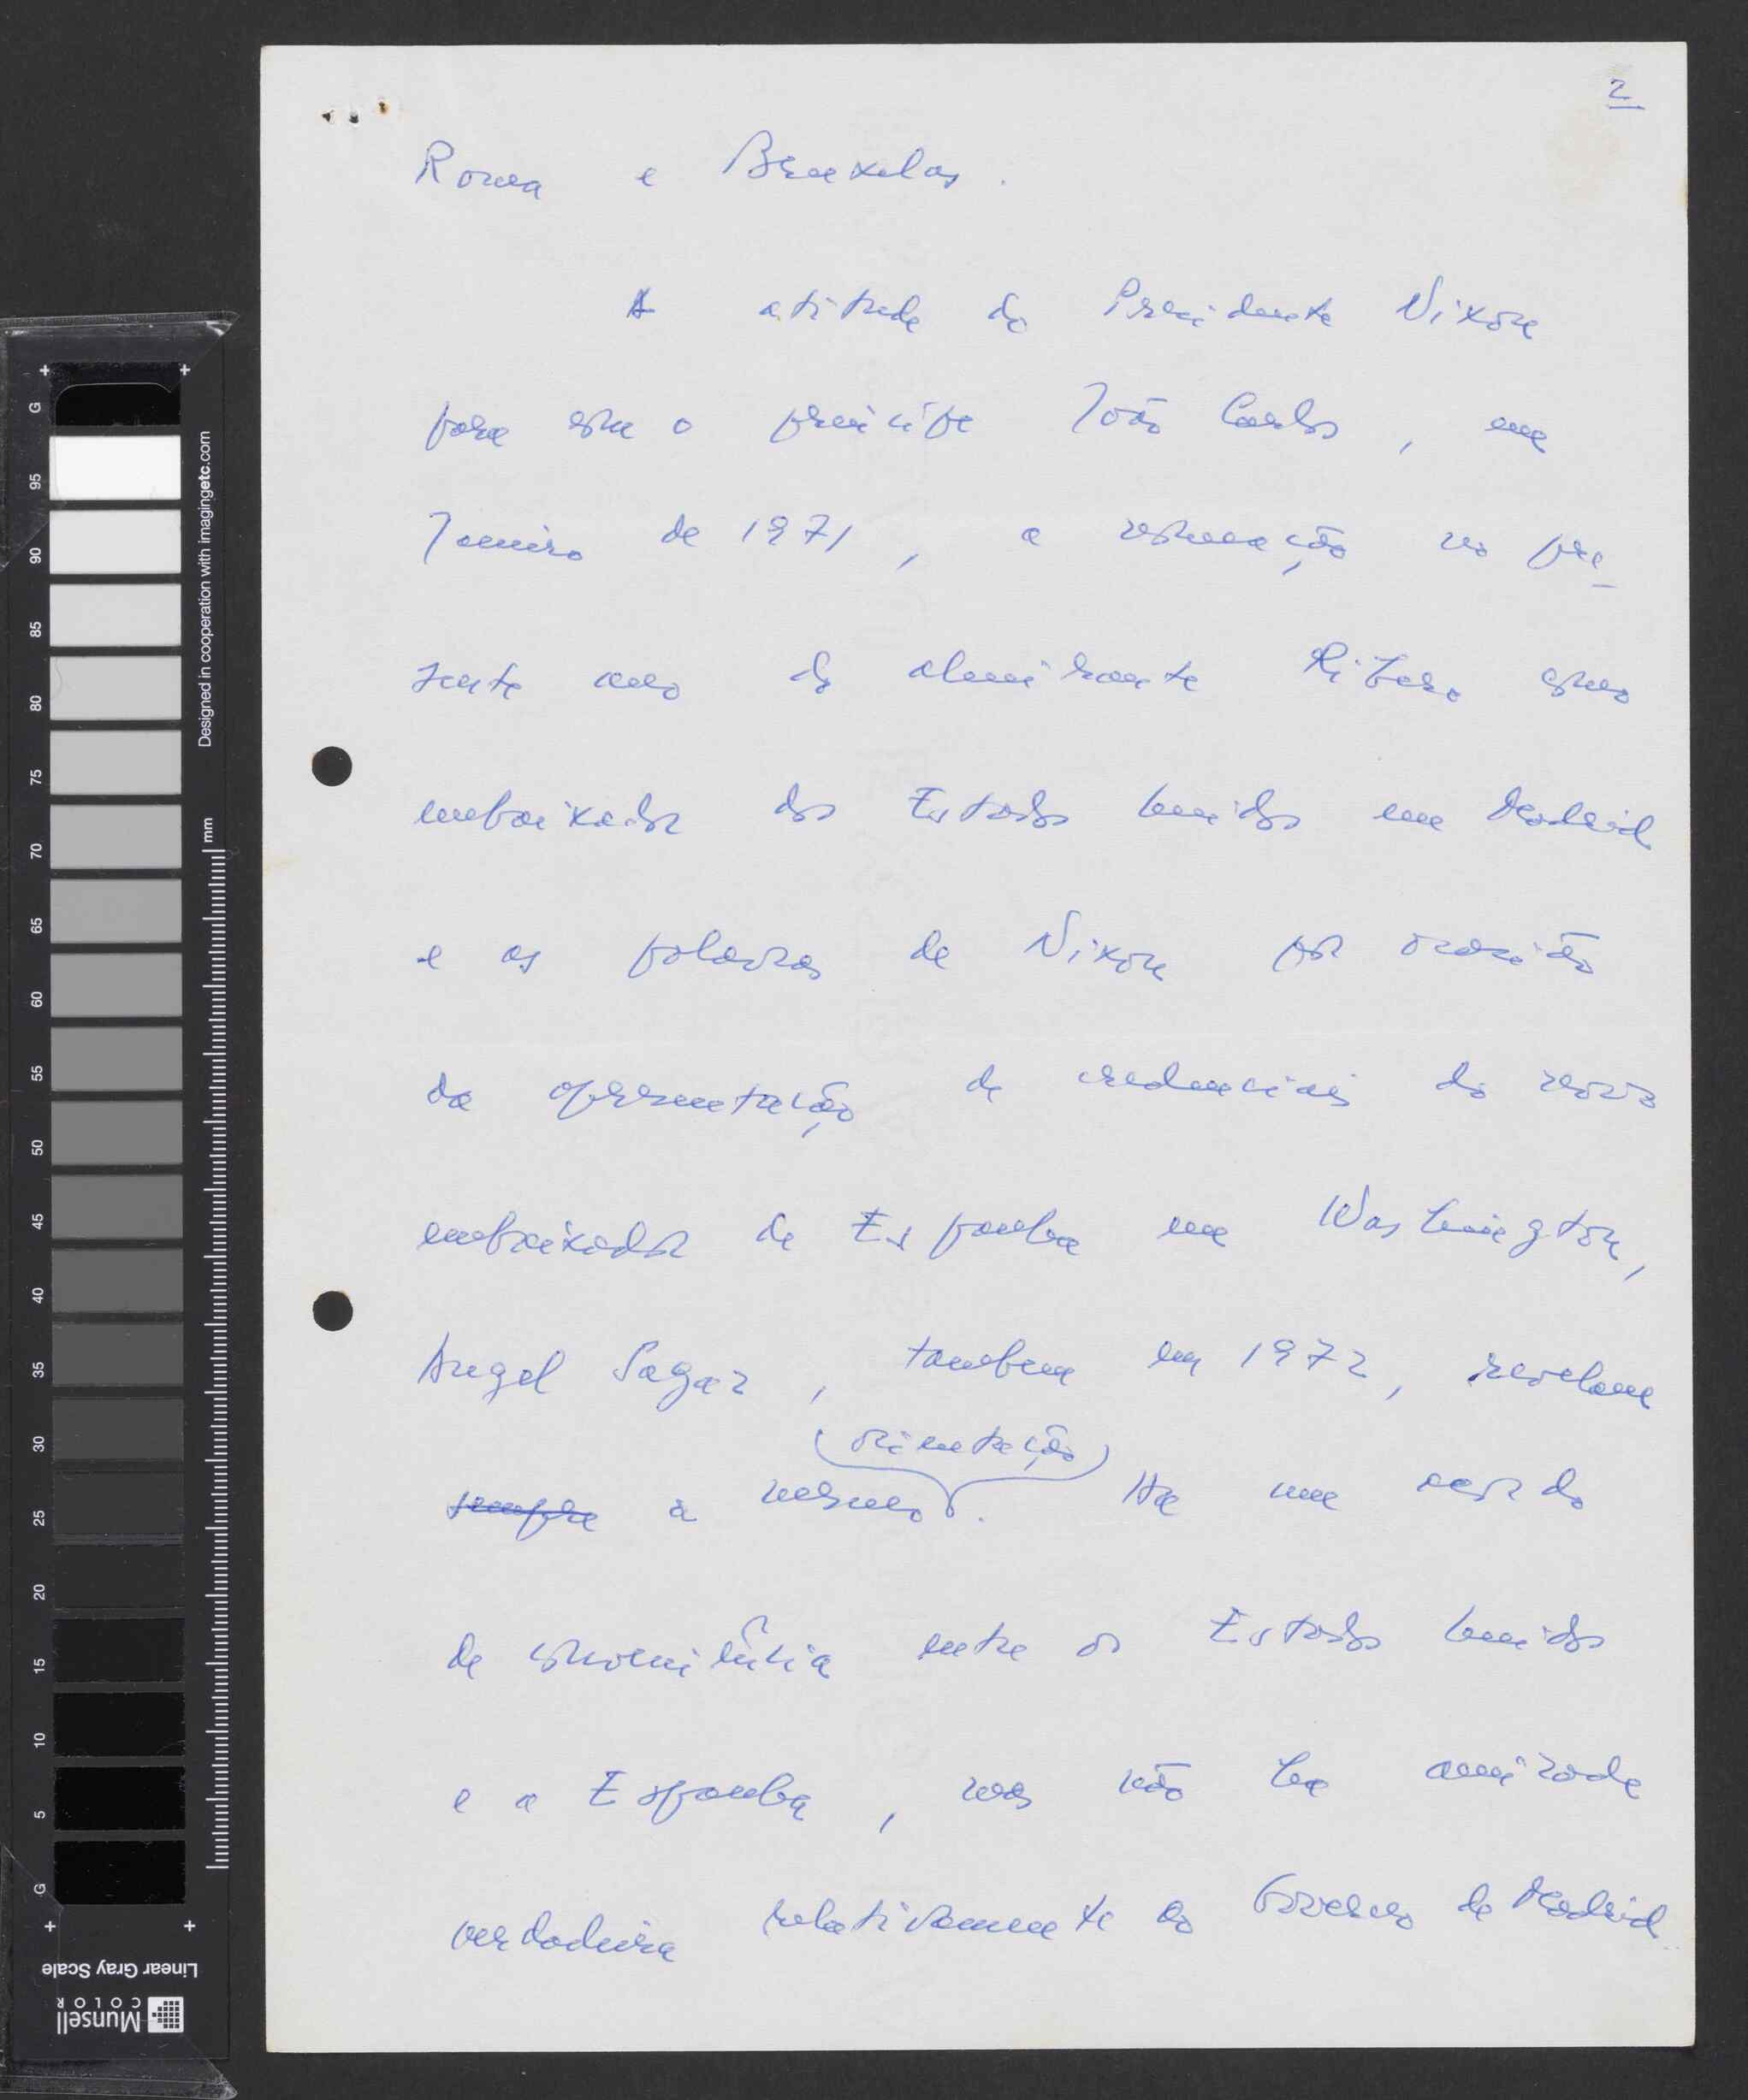 2
Roma e Bruxelas.
A atitude do Presidente Nixon
para com o príncipe João Carlos, em
Janeiro de 1971, a nomeação no pre-
sente ano do almirante Rivero como
embaixador dos Estados Unidos em Madrid
e as palavras de Nixon por ocasião
da apresentação de credenciais do novo
embaixador de Espanha em Washington,
Angel Sagaz, tambem em 1972, revelam
(orientação)
sempre a mesma. Ha um acordo
de conveniência entre os Estados Unidos
e a Espanha, mas não ha amizade
verdadeira relativamente ao Governo de Madrid.
G
95
90
85
80
75
70
65
60
55
50
45
40
35
30
25
20
15
10
5
G
mm
Designed in cooperation with imagingetc.com
Linear Gray Scale
Munsell
COLOR